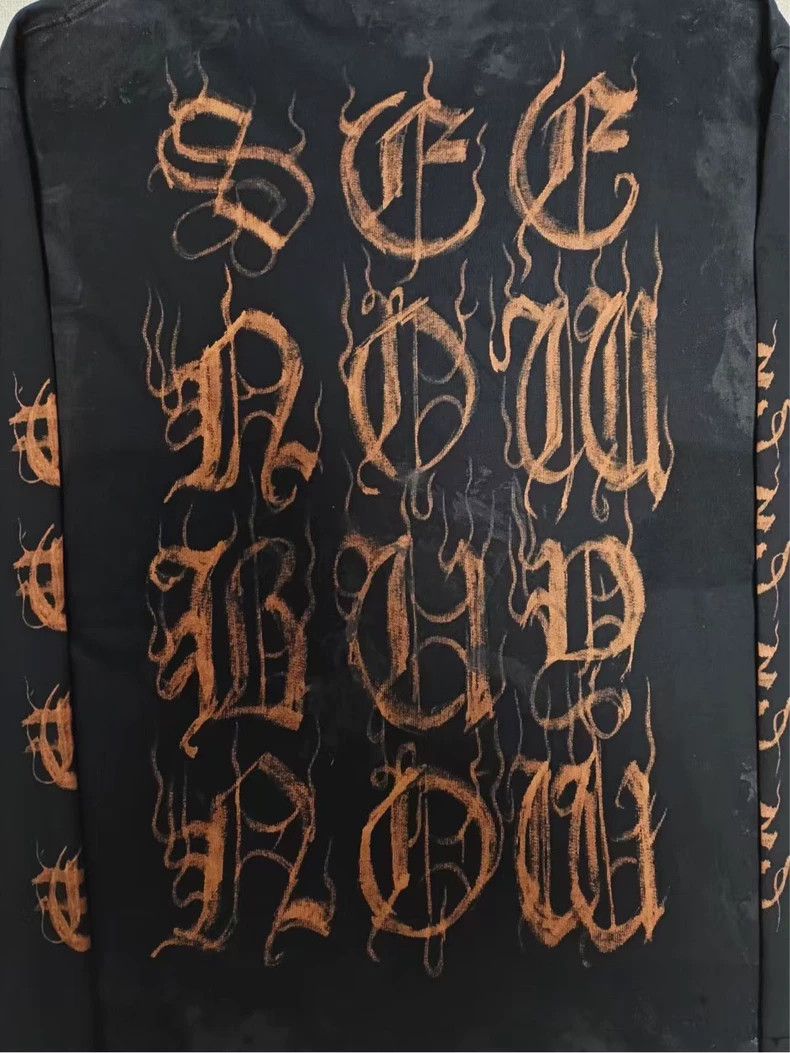 SEE
NOW
BUY
NOW